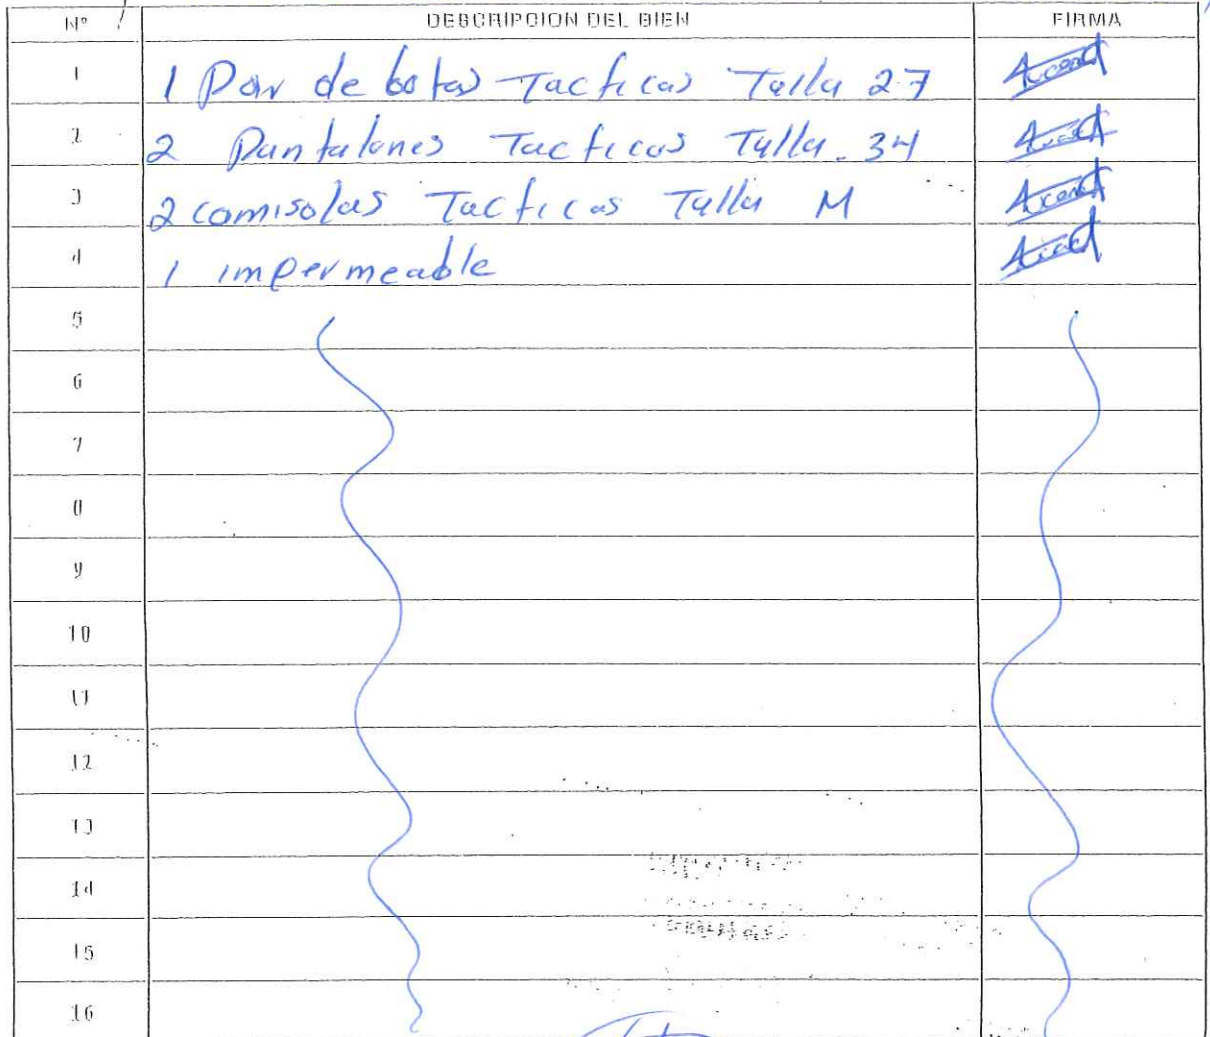 Nº DESCRIPCION DEL BIEN FIRMA
1 1 Par de botas Tacticas Talla 27
2 2 Pantalones Tacticos Talla. 34
3 2 camisolas Tacticas Talla M
4 1 impermeable
5
6
7
8
9
10
11
12
13
14
15
16